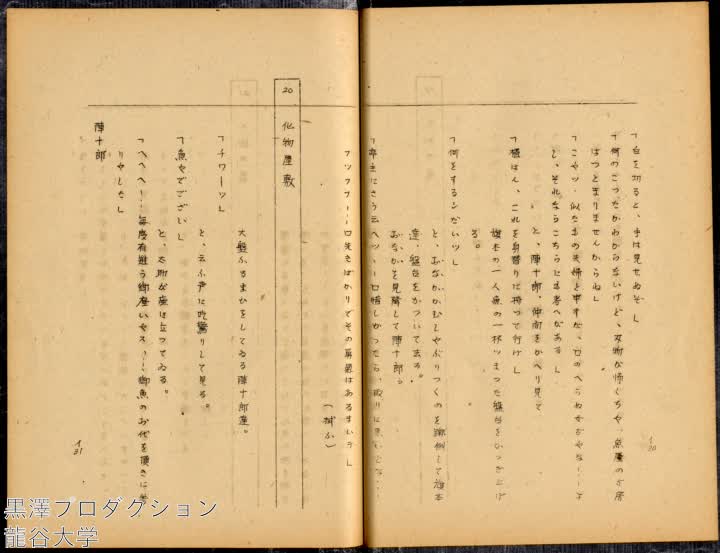 「白を切ると、手は見せぬぞ」
「何のこつたかわからないけど、刃物が怖くちや、魚屋の女房
はつとまりませんからね」
「こやツ、似たもの夫婦と申すが、口のへらぬ女ぢやな・・よ
し、それならこちらにも考へがある」
と、陣十郎、仲間をかへり見て
「構はん、これを身替りに持つて行け」
旗本の一人魚の一杯ツまつた盤台をかつぎ上げ
る。
「何をするンだいツ」
と、おなかがむしやぶりつくのを蹴倒して旗本
達、盤台をかついで去る。
おなかを見落して陣十郎。
「亭主にさう云へツ・・口惜しかつたら、取りに来いとな・・
フツフフ・・口先きばかりでその勇気はあるまいテ」
20 化物屋敷
大盤ふるまひをしてゐる陣十郎達。
「チワーツ」
と、云ふ声に吃驚りして見る。
「魚やでございい」
と、太助が庭に立つてゐる。
「へへへ・・毎度有難う御座いやス・・御魚のお代を頂きに参
りやした」
陣十郎
1/30
1/31
黒澤プロダクション
龍谷大学